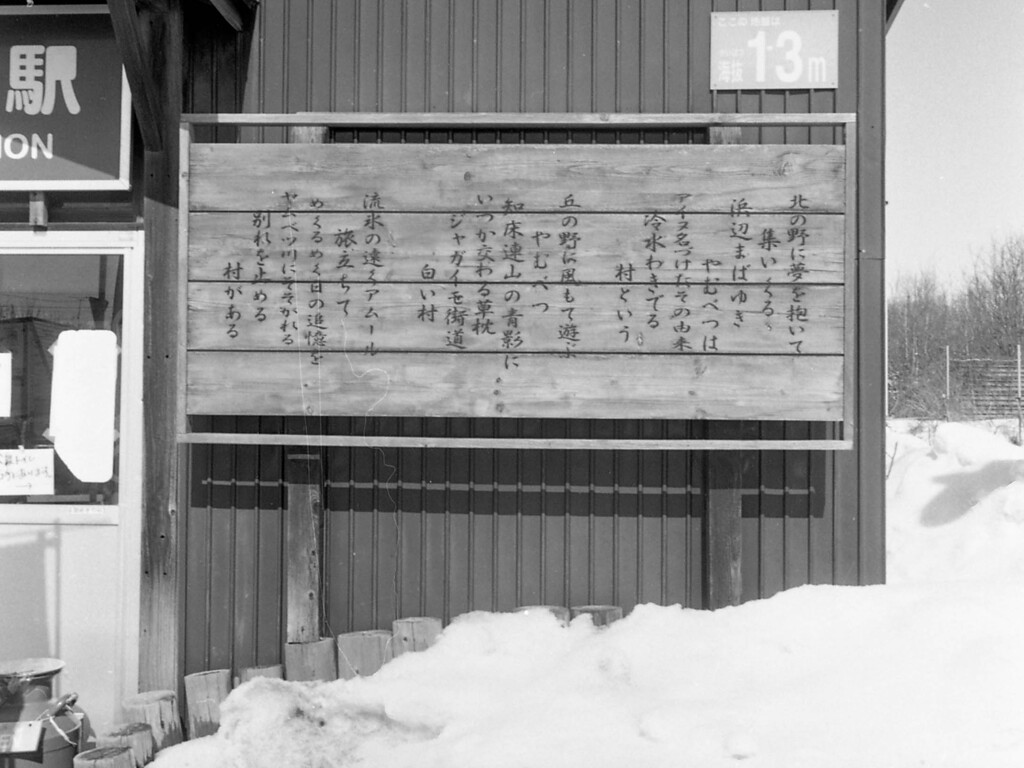 駅
ION
ここの地盤は
海抜 13m
北の野に夢を抱いて
集いくる
浜辺まばゆき
やむべつは
アイヌ名づけたその由来
冷水わきでる
村という
丘の野に風もて遊ぶ
やむべつ
知床連山の青影に
いつか交わる草枕
ジャガイモ街道
白い村
流氷の遠くアムール
旅立ちて
めくるめく日の追憶を
ヤムベツ川にそそがれる
別れを止める
村がある